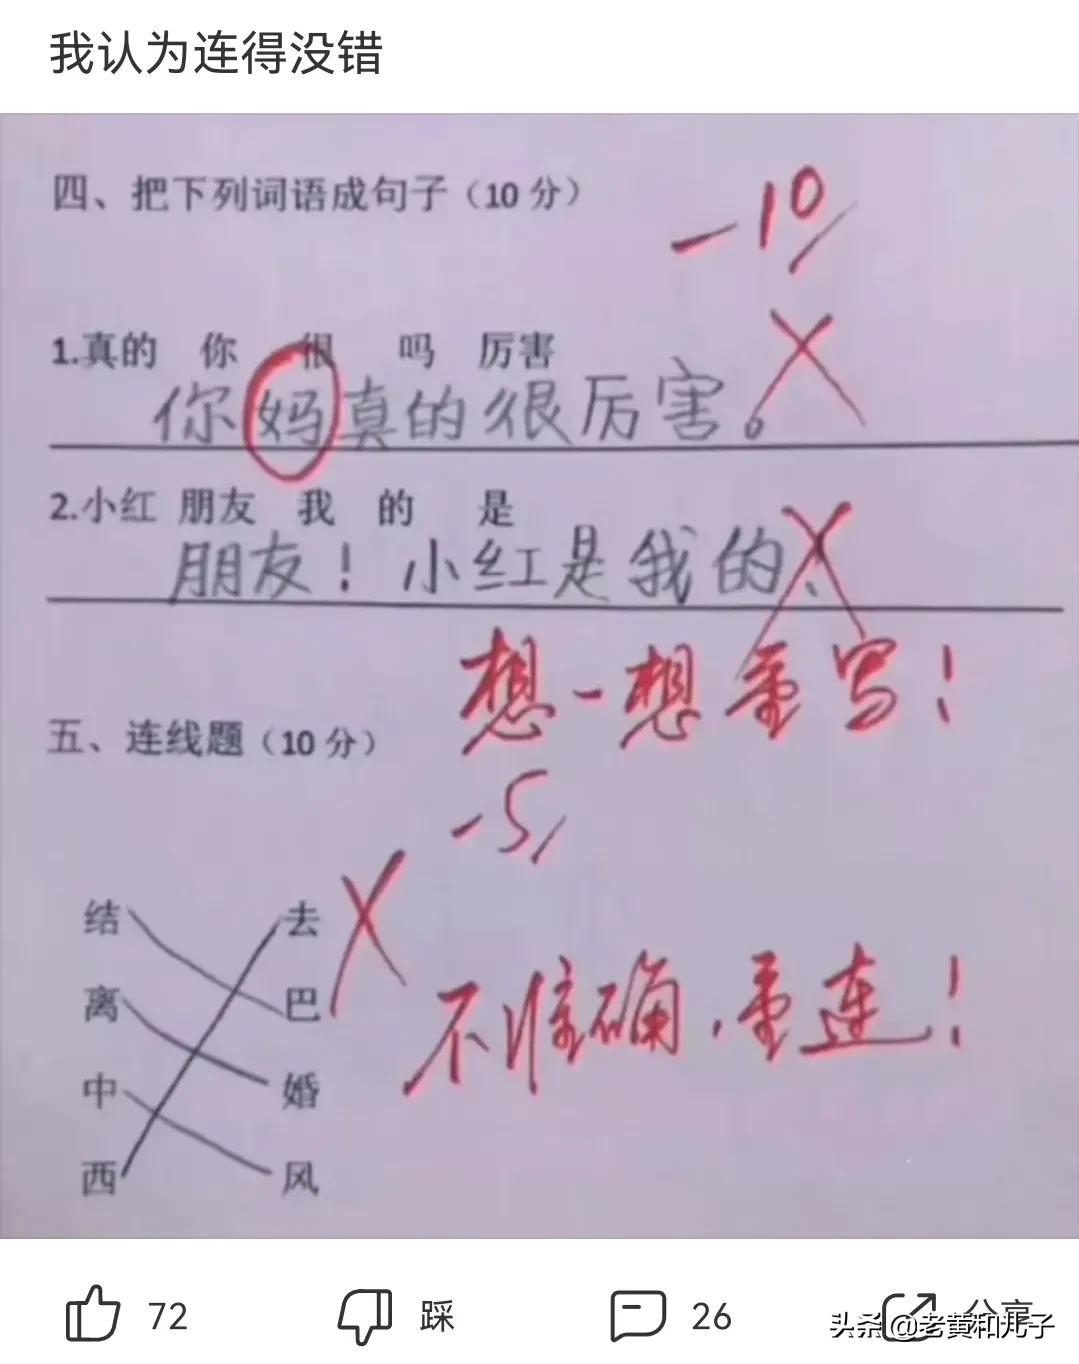 我认为连得没错
四、把下列词语成句子（10 分）
-10
1.真的 你 很 吗 厉害
你妈真的很厉害。
2.小红 朋友 我 的 是
朋友！小红是我的、
想一想重写！
五、连线题（10 分）
-5
结 去
离 巴
不准确，重连！
中 婚
西 风
72 踩 26 分享
头条 @老黄和儿子